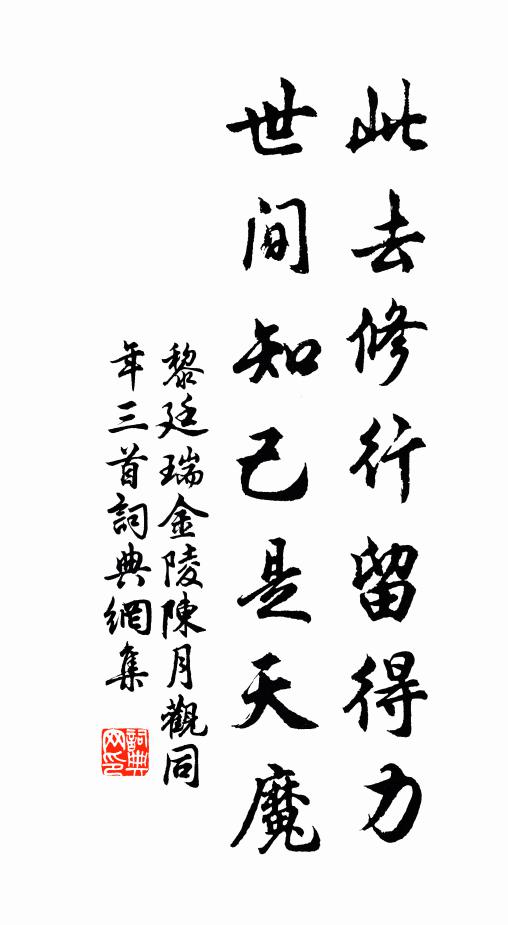 此去修行留得力
世间知己是天魔
黎廷瑞金陵陳月觀同
年三首詞典網集
詞典
网印